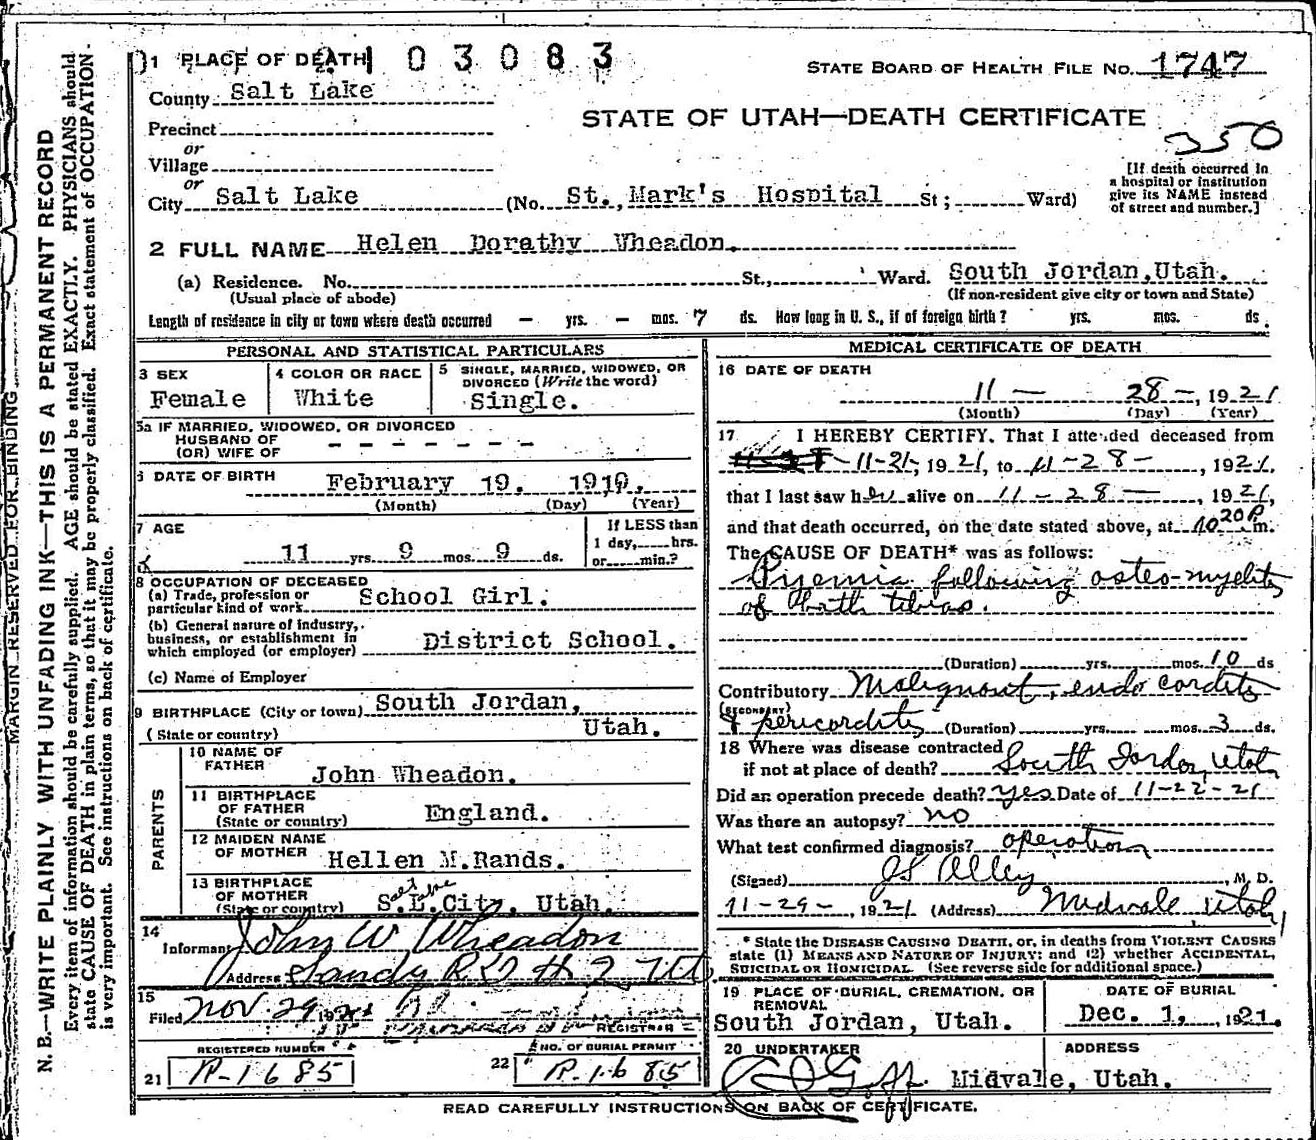 1 PLACE OF DEATH 1 0 3 0 8 3
STATE BOARD OF HEALTH FILE NO. 1747
County Salt Lake
STATE OF UTAH—DEATH CERTIFICATE
350
Precinct
or
Village
or
City Salt Lake (No. St. Mark's Hospital St; Ward)
[If death occurred in a hospital or institution give its NAME instead of street and number.]
2 FULL NAME Helen Dorathy Wheadon.
(a) Residence. No. St., Ward. South Jordan, Utah.
(Usual place of abode) (If non-resident give city or town and State)
Length of residence in city or town where death occurred - yrs. - mos. 7 ds. How long in U. S., if of foreign birth? yrs. mos. ds.
PERSONAL AND STATISTICAL PARTICULARS
3 SEX
Female
4 COLOR OR RACE
White
5 SINGLE, MARRIED, WIDOWED, OR DIVORCED (Write the word)
Single.
5a IF MARRIED, WIDOWED, OR DIVORCED
HUSBAND OF
(OR) WIFE OF - - - - - - -
6 DATE OF BIRTH February 19. 1910.
(Month) (Day) (Year)
7 AGE
11 yrs. 9 mos. 9 ds.
If LESS than
1 day, hrs.
or min.?
8 OCCUPATION OF DECEASED
(a) Trade, profession or
particular kind of work School Girl.
(b) General nature of industry,
business, or establishment in
which employed (or employer) District School.
(c) Name of Employer
9 BIRTHPLACE (City or town) South Jordan,
(State or country) Utah.
PARENTS
10 NAME OF
FATHER
John Wheadon.
11 BIRTHPLACE
OF FATHER
(State or country) England.
12 MAIDEN NAME
OF MOTHER Hellen M. Rands.
13 BIRTHPLACE
OF MOTHER
(State or country) S. L. City, Utah.
Salt Lake
14
Informant John W Wheadon
Address Sandy R D # 2 Ut.
15
Filed Nov. 29 192
REGISTRAR
REGISTERED NUMBER
21 R-1685
NO. OF BURIAL PERMIT
22 R-1685
MEDICAL CERTIFICATE OF DEATH
16 DATE OF DEATH
11 - 28 -, 1921
(Month) (Day) (Year)
17 I HEREBY CERTIFY. That I attended deceased from
11-21-, 1921, to 11-28-, 1921,
that I last saw her alive on 11-28-, 1921,
and that death occurred, on the date stated above, at 10 20 P. m.
The CAUSE OF DEATH* was as follows:
Pyemia following osteo-myelitis
of both tibias.
(Duration) yrs. mos. 10 ds
Contributory Malignant, endo carditis
(SECONDARY)
& pericarditis (Duration) yrs. mos. 3 ds.
18 Where was disease contracted
if not at place of death? South Jordan, Utah
Did an operation precede death? yes Date of 11-22-21
Was there an autopsy? no
What test confirmed diagnosis? operation
(Signed) JS Alley, M. D.
11-29-, 1921 (Address) Midvale, Utah
* State the DISEASE CAUSING DEATH, or, in deaths from VIOLENT CAUSES
state (1) MEANS AND NATURE OF INJURY; and (2) whether ACCIDENTAL,
SUICIDAL OR HOMICIDAL. (See reverse side for additional space.)
19 PLACE OF BURIAL, CREMATION, OR
REMOVAL
South Jordan, Utah.
DATE OF BURIAL
Dec. 1, 1921.
20 UNDERTAKER ADDRESS
Goff Midvale, Utah.
READ CAREFULLY INSTRUCTIONS ON BACK OF CERTIFICATE.
MARGIN RESERVED FOR BINDING
N. B.—WRITE PLAINLY WITH UNFADING INK—THIS IS A PERMANENT RECORD
Every item of information should be carefully supplied. AGE should be stated EXACTLY. PHYSICIANS should
state CAUSE OF DEATH in plain terms, so that it may be properly classified. Exact statement of OCCUPATION
is very important. See instructions on back of certificate.